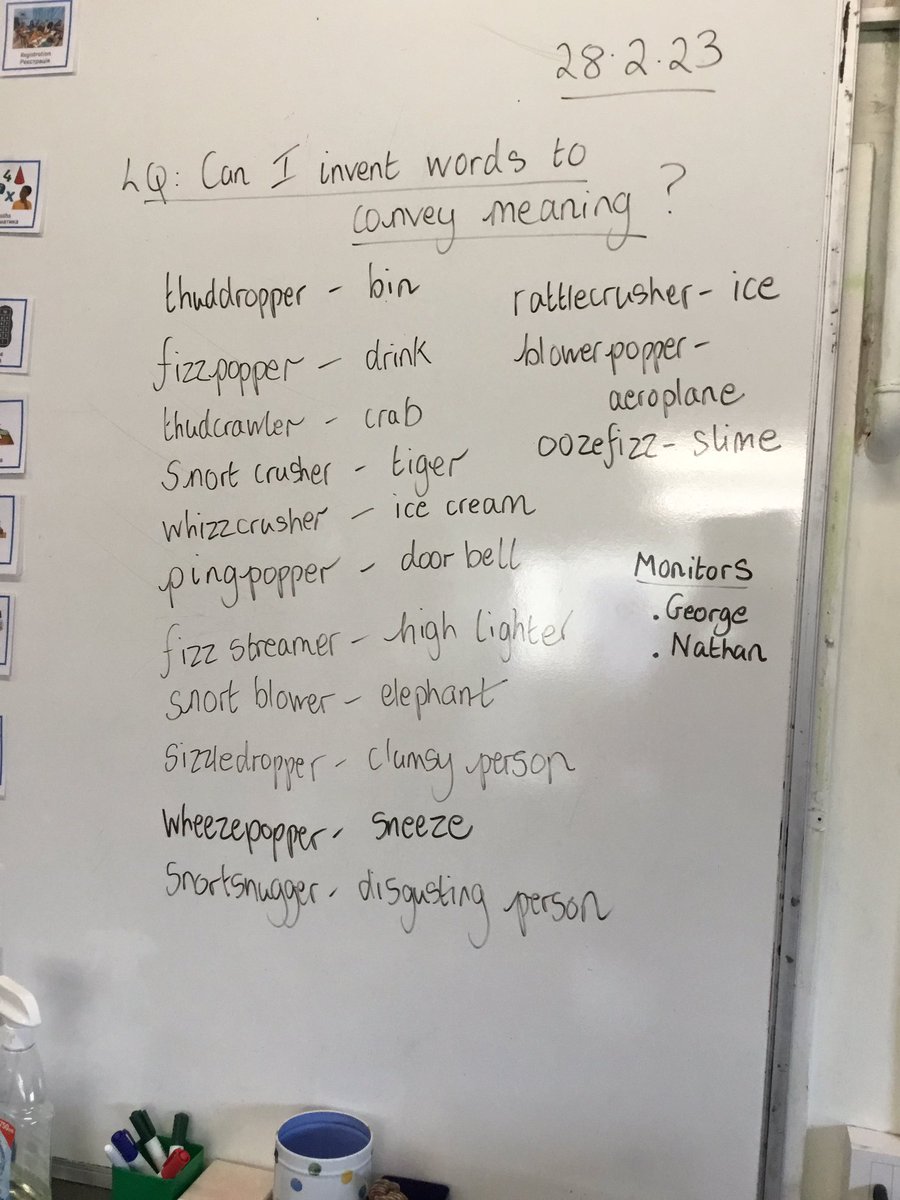 Registration
Реєстрація
28.2.23
LQ: Can I invent words to
convey meaning?
thuddropper - bin
fizzpopper - drink
thudcrawler - crab
Snort crusher - tiger
whizzcrusher - ice cream
pingpopper - door bell
fizz streamer - high lighter
snort blower - elephant
Sizzledropper - clumsy person
wheezepopper - sneeze
Snortsnugger - disgusting person
rattlecrusher - ice
blowerpopper -
aeroplane
oozefizz - slime
Monitors
. George
. Nathan